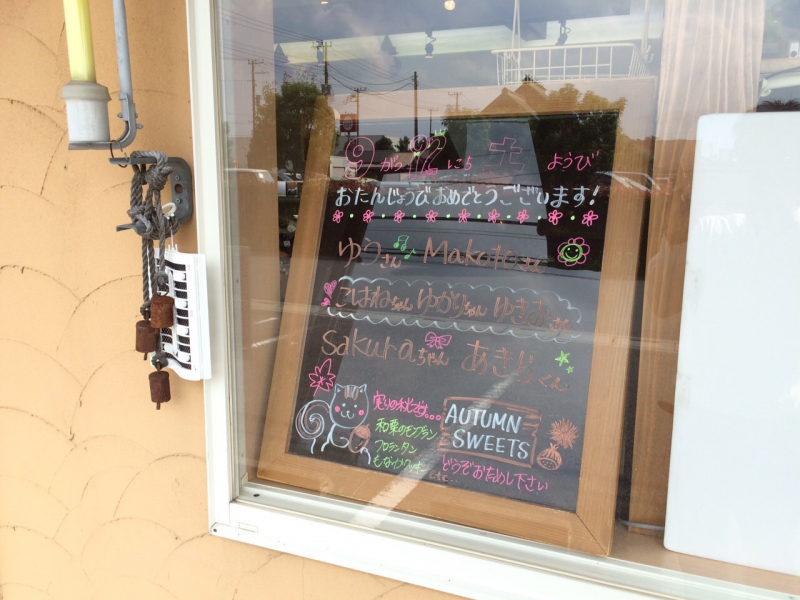 9がつ 12にち 土ようび
おたんじょうびおめでとうございます!
ゆうさん Makotoさん
こはねちゃん ゆかりちゃん ゆきみさん
sakuraちゃん あきらくん
実りの秋です。。。
和栗のモンブラン
フロランタン
AUTUMN
SWEETS
どうぞおためし下さい